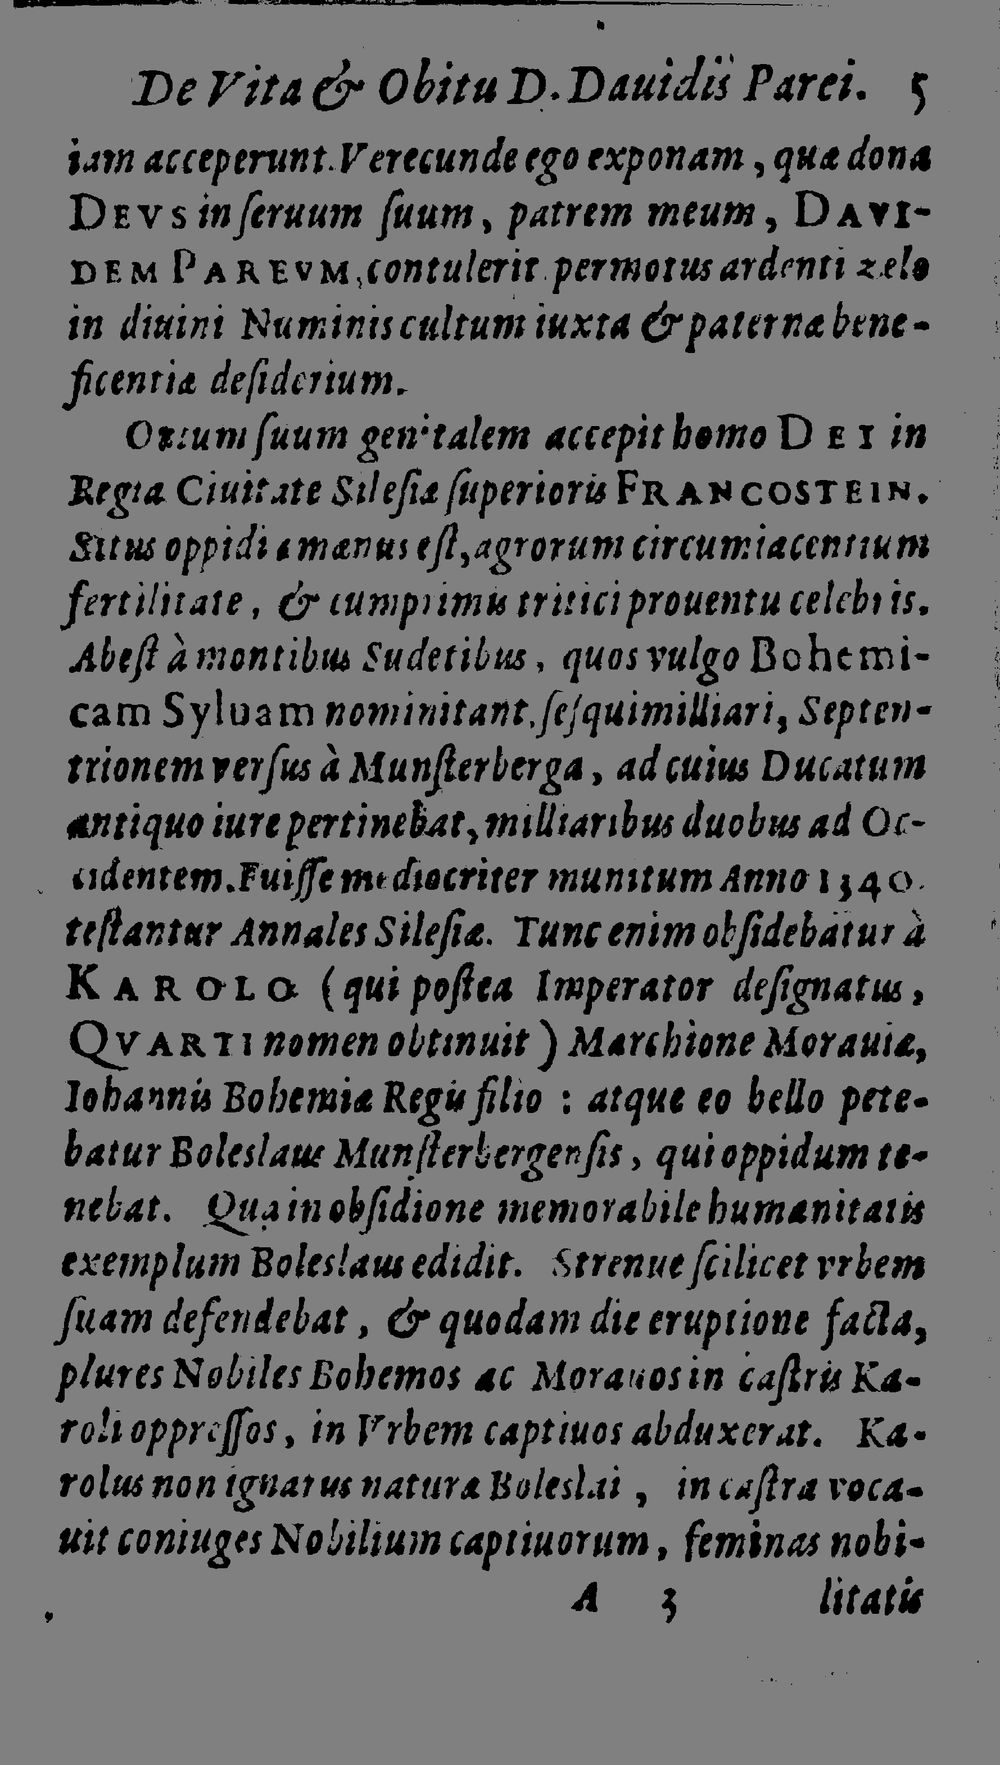 De Vita & Obitu D. Dauidis Parei. 5
iam acceperunt. Verecunde ego exponam, quæ dona
DEVS in ſeruum ſuum, patrem meum, DAVI-
DEM PAREVM, contulerit permotus ardenti zelo
in diuini Numinis cultum iuxta & paternæ bene-
ficentiæ deſiderium.
Ortum ſuum genitalem accepit homo DEI in
Regia Ciuitate Sileſiæ ſuperioris FRANCOSTEIN.
Situs oppidi amœnus eſt, agrorum circumiacentium
fertilitate, & cumprimis tritici prouentu celebris.
Abeſt à montibus Sudetibus, quos vulgo Bohemi-
cam Syluam nominitant, ſeſquimilliari, Septen-
trionem verſus à Munſterberga, ad cuius Ducatum
antiquo iure pertinebat, milliaribus duobus ad Oc-
cidentem. Fuiſſe mediocriter munitum Anno 1340.
teſtantur Annales Sileſiæ. Tunc enim obſidebatur à
KAROLO (qui poſtea Imperator deſignatus,
QVARTI nomen obtinuit) Marchione Morauiæ,
Iohannis Bohemiæ Regis filio : atque eo bello pete-
batur Boleslaus Munſterbergenſis, qui oppidum te-
nebat. Qua in obſidione memorabile humanitatis
exemplum Boleslaus edidit. Strenue ſcilicet vrbem
ſuam defendebat, & quodam die eruptione facta,
plures Nobiles Bohemos ac Morauos in caſtris Ka-
roli oppreſſos, in Vrbem captiuos abduxerat. Ka-
rolus non ignarus naturæ Boleslai, in caſtra voca-
uit coniuges Nobilium captiuorum, feminas nobi-
A 3 litatis